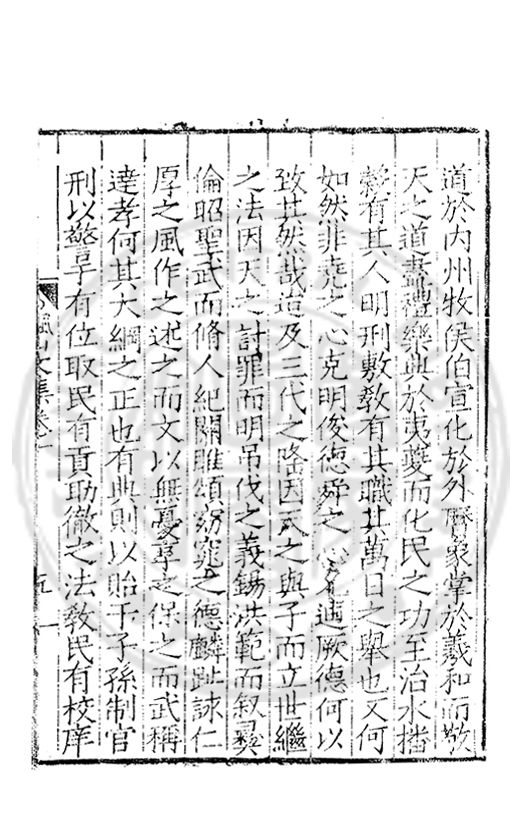 道於内州牧侯伯宣化於外曆象掌於羲和而敬
天之道盡禮樂典於夷夔而化民之功至治水播
穀有其人明刑敷教有其職其萬目之舉也又何
如然非堯之心克明俊德舜之心允迪厥德何以
致其然哉迨及三代之隆因天之與子而立世繼
之法因天之討罪而明吊伐之義錫洪範而叙彛
倫昭聖武而脩人紀關雎頌窈窕之德麟趾詠仁
厚之風作之述之而文以無憂享之保之而武稱
達孝何其大綱之正也有典則以貽干子孫制官
刑以警于有位取民有貢助徹之法教民有校庠
山文集卷
九一